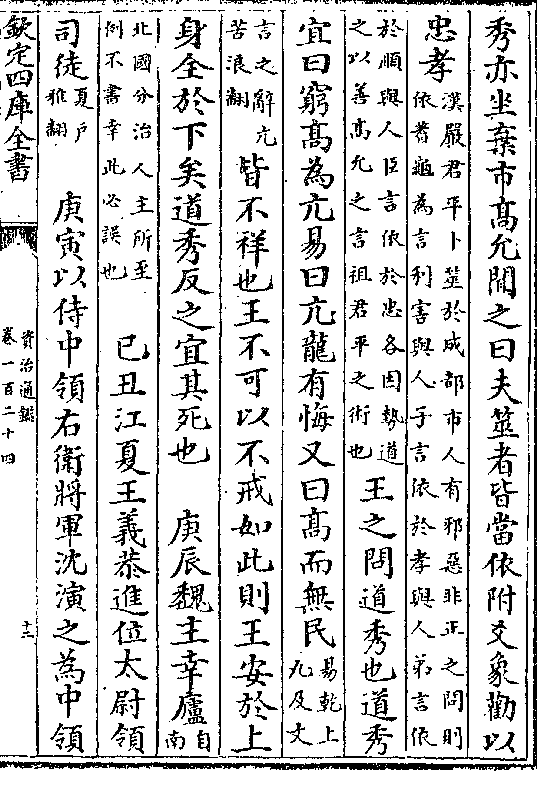 秀亦坐棄市高允聞之曰夫筮者皆當依附爻象勸以
忠孝漢嚴君平卜筮於成都市人有邪惡非正之問則
依蓍龜為言利害與人子言依於孝與人弟言依
於順與人臣言依於忠各因勢道
之以善高允之言祖君平之術也王之問道秀也道秀
宜曰窮高為亢易曰亢龍有悔又曰高而無民易乾上
九及文
言之辭亢
苦浪翻皆不祥也王不可以不戒如此則王安於上
身全於下矣道秀反之宜其死也 庚辰魏主幸廬自
南
北國分治人主所至
例不書幸此必誤也 己丑江夏王義恭進位太尉領
司徒夏户
雅翻 庚寅以侍中領右衛將軍沈演之為中領
欽定四庫全書
資治通鑑
卷一百二十四
十三